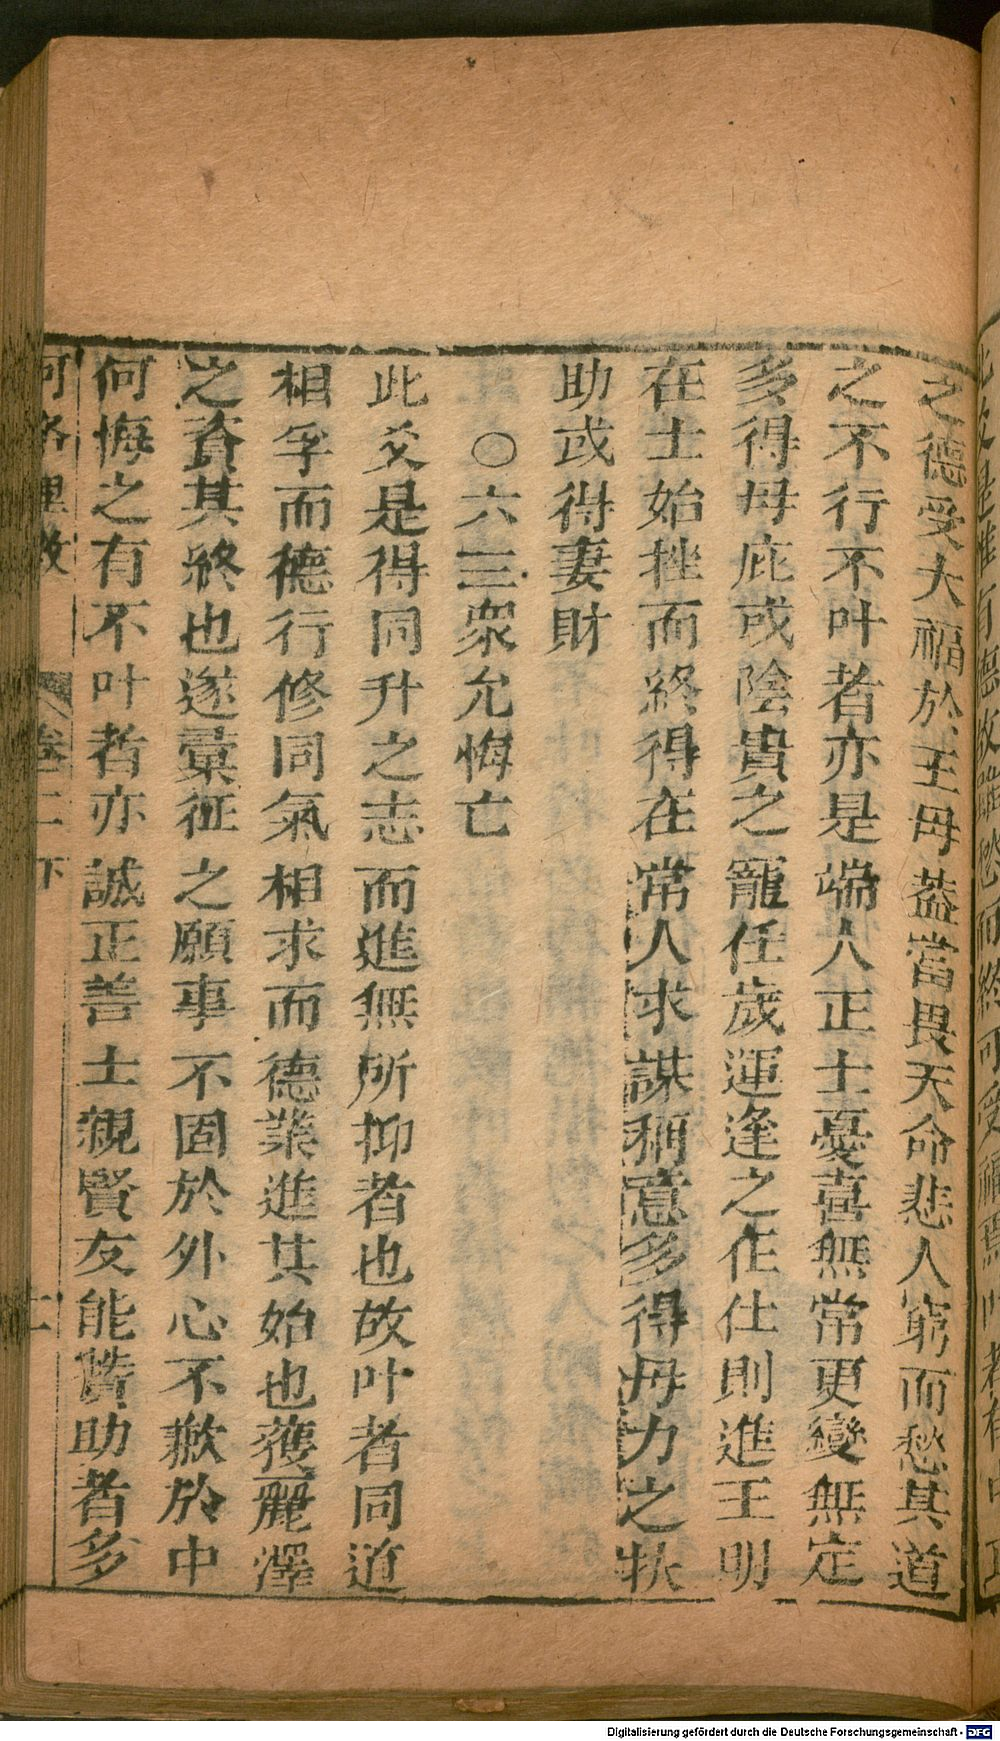 之德受大福於王母葢當畏天命悲人窮而愁其道
之不行不叶者亦是端人正士憂喜無常更變無定
多得母庇或陰貴之寵任歲運逢之在仕則進王明
在士始挫而終得在常人求謀稱意多得母力之扶
助或得妻財
○六三衆允悔亡
此爻是得同升之志而進無所抑者也故叶者同道
相孚而德行修同氣相求而德業進其始也獲麗澤
之資其終也遂彙征之願事不固於外心不歉於中
何悔之有不叶者亦誠正善士親賢友能賛助者多
河洛理数 卷二下
Digitalisierung gefördert durch die Deutsche Forschungsgemeinschaft - DFG